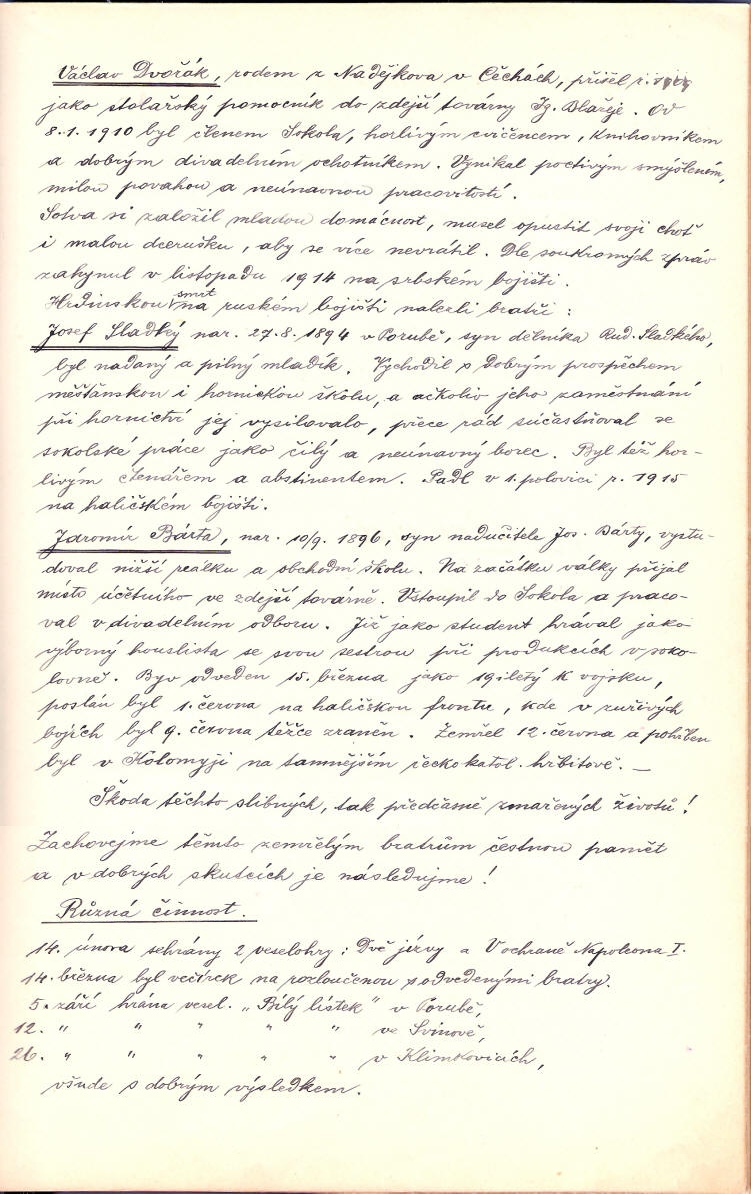 Václav Dvořák, rodem z Nadějkova v Čechách, přišel r.
jako stolařský pomocník do zdejší továrny Ig. Blažeje. Od
8.1.1910 byl členem Sokola, horlivým cvičencem, knihovníkem
a dobrým divadelním ochotníkem. Vynikal poctivým smýšlením,
milou povahou a neúnavnou pracovitostí.
Sotva si založil mladou domácnost, musel opustit svoji choť
i malou dcerušku, aby se více nevrátil. Dle soukromých zpráv
zahynul v listopadu 1914 na srbském bojišti.
Hrdinskou smrt na ruském bojišti nalezli bratři :
Josef Sladký nar. 27.8.1894 v Porubě, syn dělníka Rud. Sladkého,
byl nadaný a pilný mladík. Vychodil s dobrým prospěchem
měšťanskou i hornickou školu, a ačkoliv jeho zaměstnání
při hornictví jej vysilovalo, přece rád súčastňoval se
sokolské práce jako čilý a neúnavný borec. Byl též hor-
livým čtenářem a abstinentem. Padl v 1. polovici r. 1915
na haličském bojišti.
Jaromír Bárta, nar. 10/9. 1896, syn nadučitele Jos. Bárty, vystu-
doval nižší reálku a obchodní školu. Na začátku války přijal
místo účetního ve zdejší továrně. Vstoupil do Sokola a praco-
val v divadelním odboru. Již jako student hrával jako
výborný houslista se svou sestrou při produkcích v soko-
lovně. Byv odveden 15. března jako 19letý k vojsku,
poslán byl 1. června na haličskou frontu, kde v zuřivých
bojích byl 9. června těžce zraněn. Zemřel 12. června a pohřben
byl v Kolomyji na tamnějším řeckokatol. hřbitově. —
Škoda těchto slibných, tak předčasně zmařených životů !
Zachovejme těmto zemřelým bratrům čestnou paměť
a v dobrých skutcích je následujme !
Různá činnost.
14. února sehrány 2 veselohry : Dvě jizvy a V ochraně Napoleona I.
14. března byl večírek na rozloučenou s odvedenými bratry.
5. září hrána vesel. „Bílý lístek" v Porubě,
12. " " " " " ve Svinově,
26. " " " " " v Klimkovicích,
všude s dobrým výsledkem.